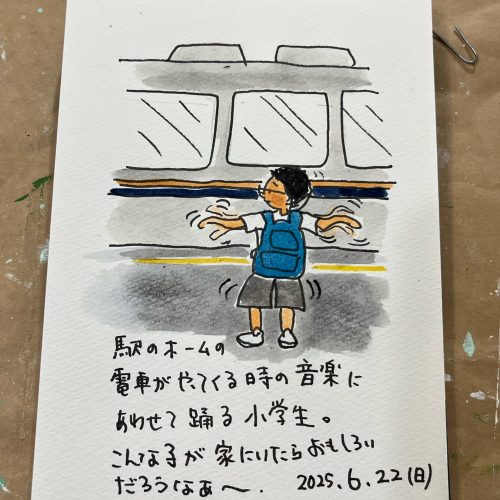 駅のホームの
電車がやってくる時の音楽に
あわせて踊る小学生。
こんな子が家にいたらおもしろい
だろうなぁ〜. 2025.6.22(日)